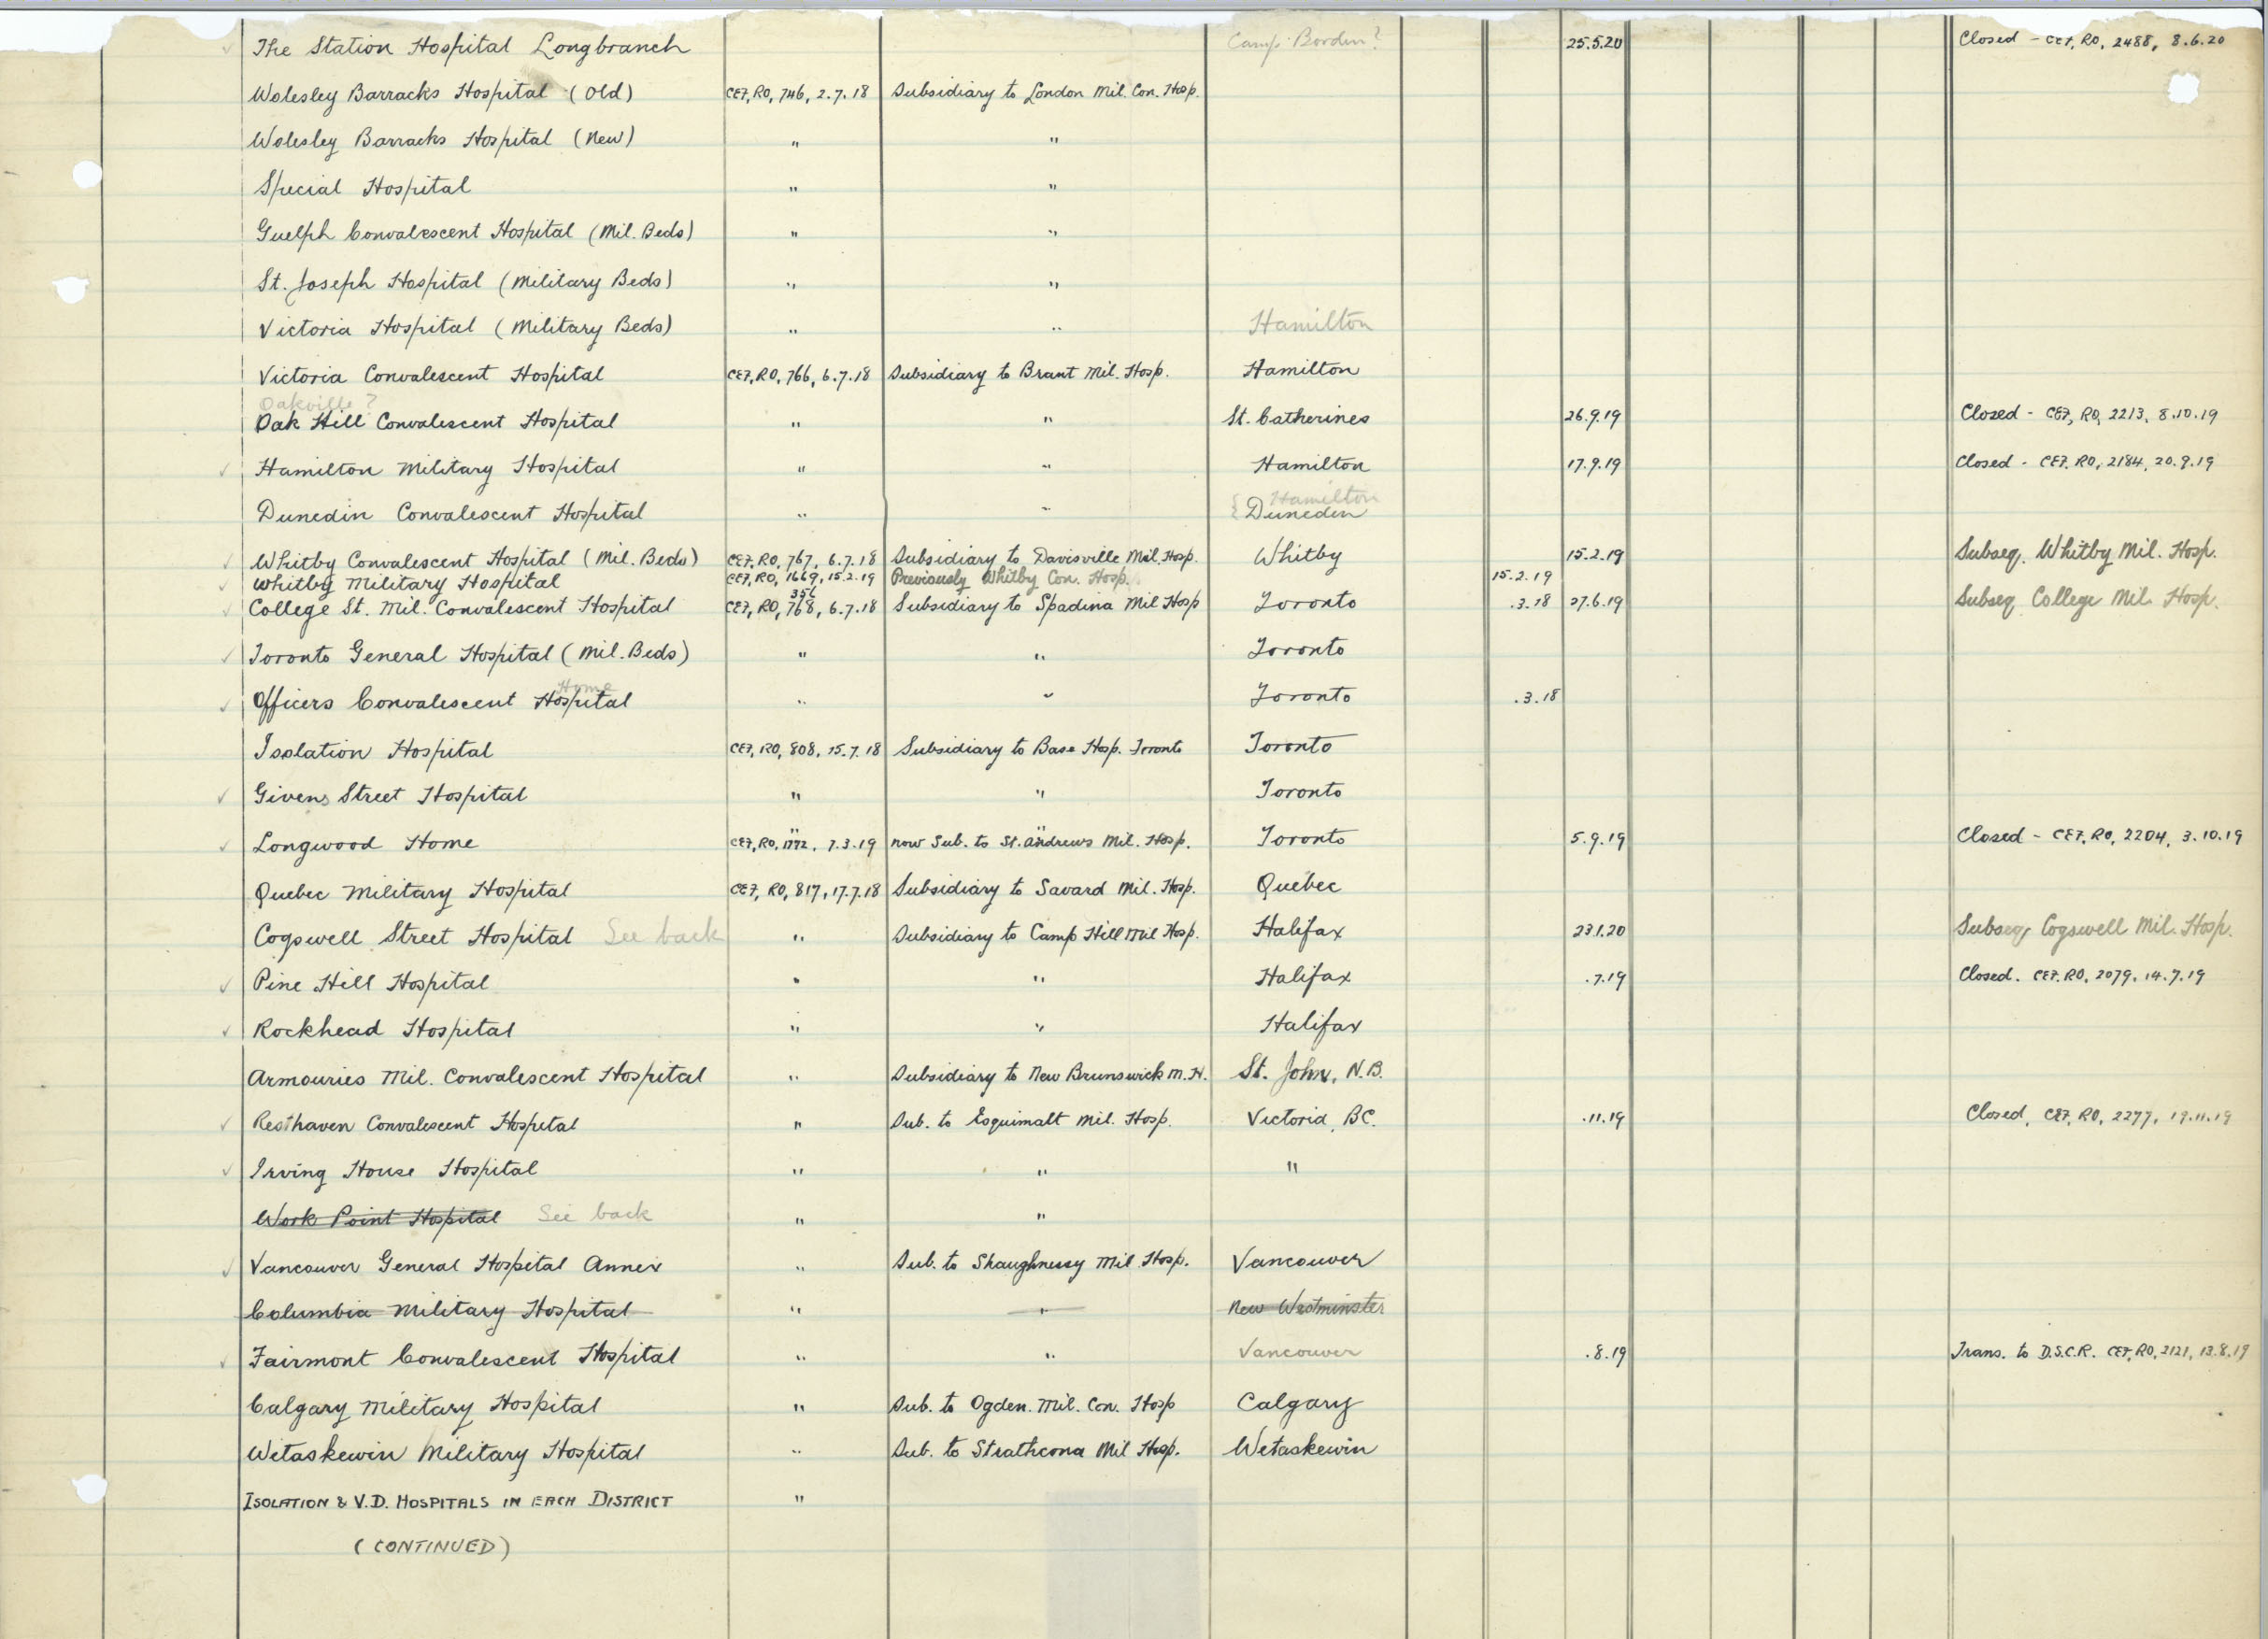 The Station Hospital Longbranch Camp Borden? 25.5.20 Closed - CEF, RO, 2488, 8.6.20
Wolesley Barracks Hospital (Old) CEF, RO, 746, 2.7.18 Subsidiary to London Mil. Con. Hosp.
Wolesley Barracks Hospital (New) " "
Special Hospital " "
Guelph Convalescent Hospital (Mil. Beds) " "
St. Joseph Hospital (Military Beds) " "
Victoria Hospital (Military Beds) " " Hamilton
Victoria Convalescent Hospital CEF, RO, 766, 6.7.18 Subsidiary to Brant Mil. Hosp. Hamilton
Oakville?
Oak Hill Convalescent Hospital " " St. Catherines 26.9.19 Closed - CEF, RO, 2213, 8.10.19
Hamilton Military Hospital " " Hamilton 17.9.19 Closed - CEF, RO, 2184, 20.9.19
Hamilton
Dunedin Convalescent Hospital " " Dunedin
Whitby Convalescent Hospital (Mil. Beds) CEF, RO, 767, 6.7.18 Subsidiary to Davisville Mil. Hosp. Whitby 15.2.19 Subseq. Whitby Mil. Hosp.
Whitby Military Hospital CEF, RO, 1669, 15.2.19 Previously Whitby Con. Hosp. 15.2.19
356
College St. Mil. Convalescent Hospital CEF, RO, 768, 6.7.18 Subsidiary to Spadina Mil Hosp Toronto .3.18 27.6.19 Subseq College Mil. Hosp.
Toronto General Hospital (Mil. Beds) " " Toronto
Home
Officers Convalescent Hospital " " Toronto .3.18
Isolation Hospital CEF, RO, 808, 15.7.18 Subsidiary to Base Hosp. Toronto Toronto
Givens Street Hospital " " Toronto
" "
Longwood Home CEF, RO, 1772, 7.3.19 now Sub. to St. Andrews Mil. Hosp. Toronto 5.9.19 Closed - CEF, RO, 2204, 3.10.19
Quebec Military Hospital CEF, RO, 817, 17.7.18 Subsidiary to Savard Mil. Hosp. Quebec
Cogswell Street Hospital See back " Subsidiary to Camp Hill Mil Hosp. Halifax 23.1.20 Subseq Cogswell Mil. Hosp.
Pine Hill Hospital " " Halifax .7.19 Closed. CEF, RO, 2079, 14.7.19
Rockhead Hospital " " Halifax
Armouries Mil. Convalescent Hospital " Subsidiary to New Brunswick M.H. St. John, N.B.
Resthaven Convalescent Hospital " Sub. to Esquimalt Mil. Hosp. Victoria, BC. .11.19 Closed, CEF, RO, 2277, 19.11.19
Irving House Hospital " " "
Work Point Hospital See back " "
Vancouver General Hospital Annex " Sub. to Shaughnessy Mil Hosp. Vancouver
Columbia Military Hospital " " New Westminster
Fairmont Convalescent Hospital " " Vancouver .8.19 Trans. to D.S.C.R. CEF, RO, 2121, 13.8.19
Calgary Military Hospital " Sub. to Ogden. Mil. Con. Hosp Calgary
Wetaskewin Military Hospital " Sub. to Strathcona Mil Hosp. Wetaskewin
ISOLATION & V.D. HOSPITALS IN EACH DISTRICT "
(CONTINUED)